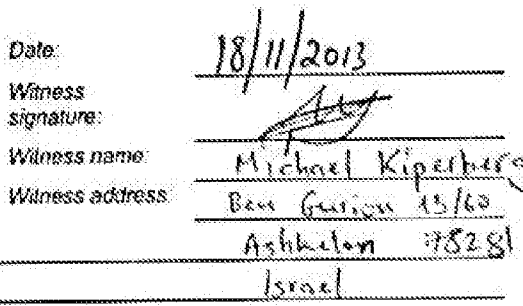 Date: 18/11/2013
Witness
signature:
Witness name: Michael Kiperberg
Witness address: Ben Gurion 15/60
Ashkelon 78281
Israel